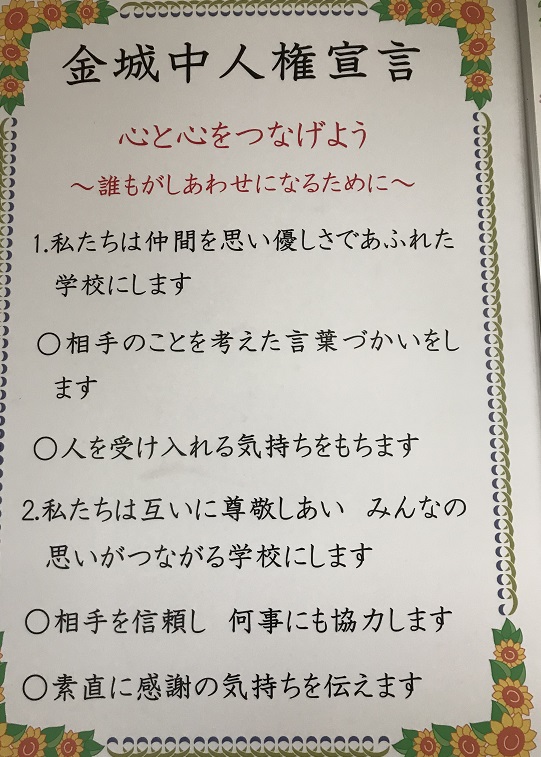 金城中人権宣言
心と心をつなげよう
～誰もがしあわせになるために～
1.私たちは仲間を思い優しさであふれた
学校にします
○相手のことを考えた言葉づかいをし
ます
○人を受け入れる気持ちをもちます
2.私たちは互いに尊敬しあい　みんなの
思いがつながる学校にします
○相手を信頼し　何事にも協力します
○素直に感謝の気持ちを伝えます